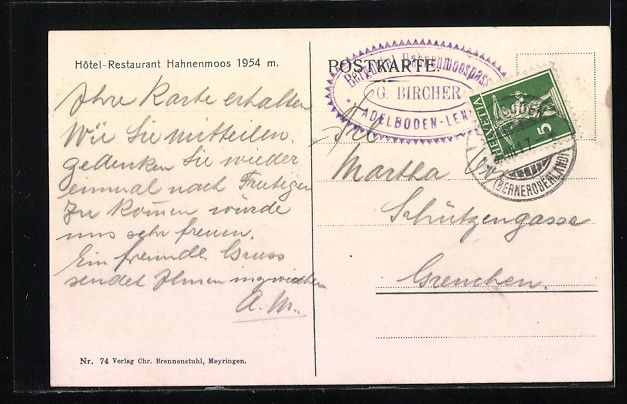 Hôtel-Restaurant Hahnenmoos 1954 m.
Ihre Karte erhalten
Wie Sie mitteilen,
gedenken Sie wieder
einmal nach Frutigen
zu kom̄en würde
uns sehr freuen.
Ein freundl. Gruss
sendet Ihnen inzwischen
A. M.
Nr. 74 Verlag Chr. Brennenstuhl, Meyringen.
POSTKARTE
Hahnenmoospass
G. BIRCHER
ADELBODEN-LENK
HELVETIA
5
(BERNEROBERLAND)
Martha
Schützengasse
Grenchen.